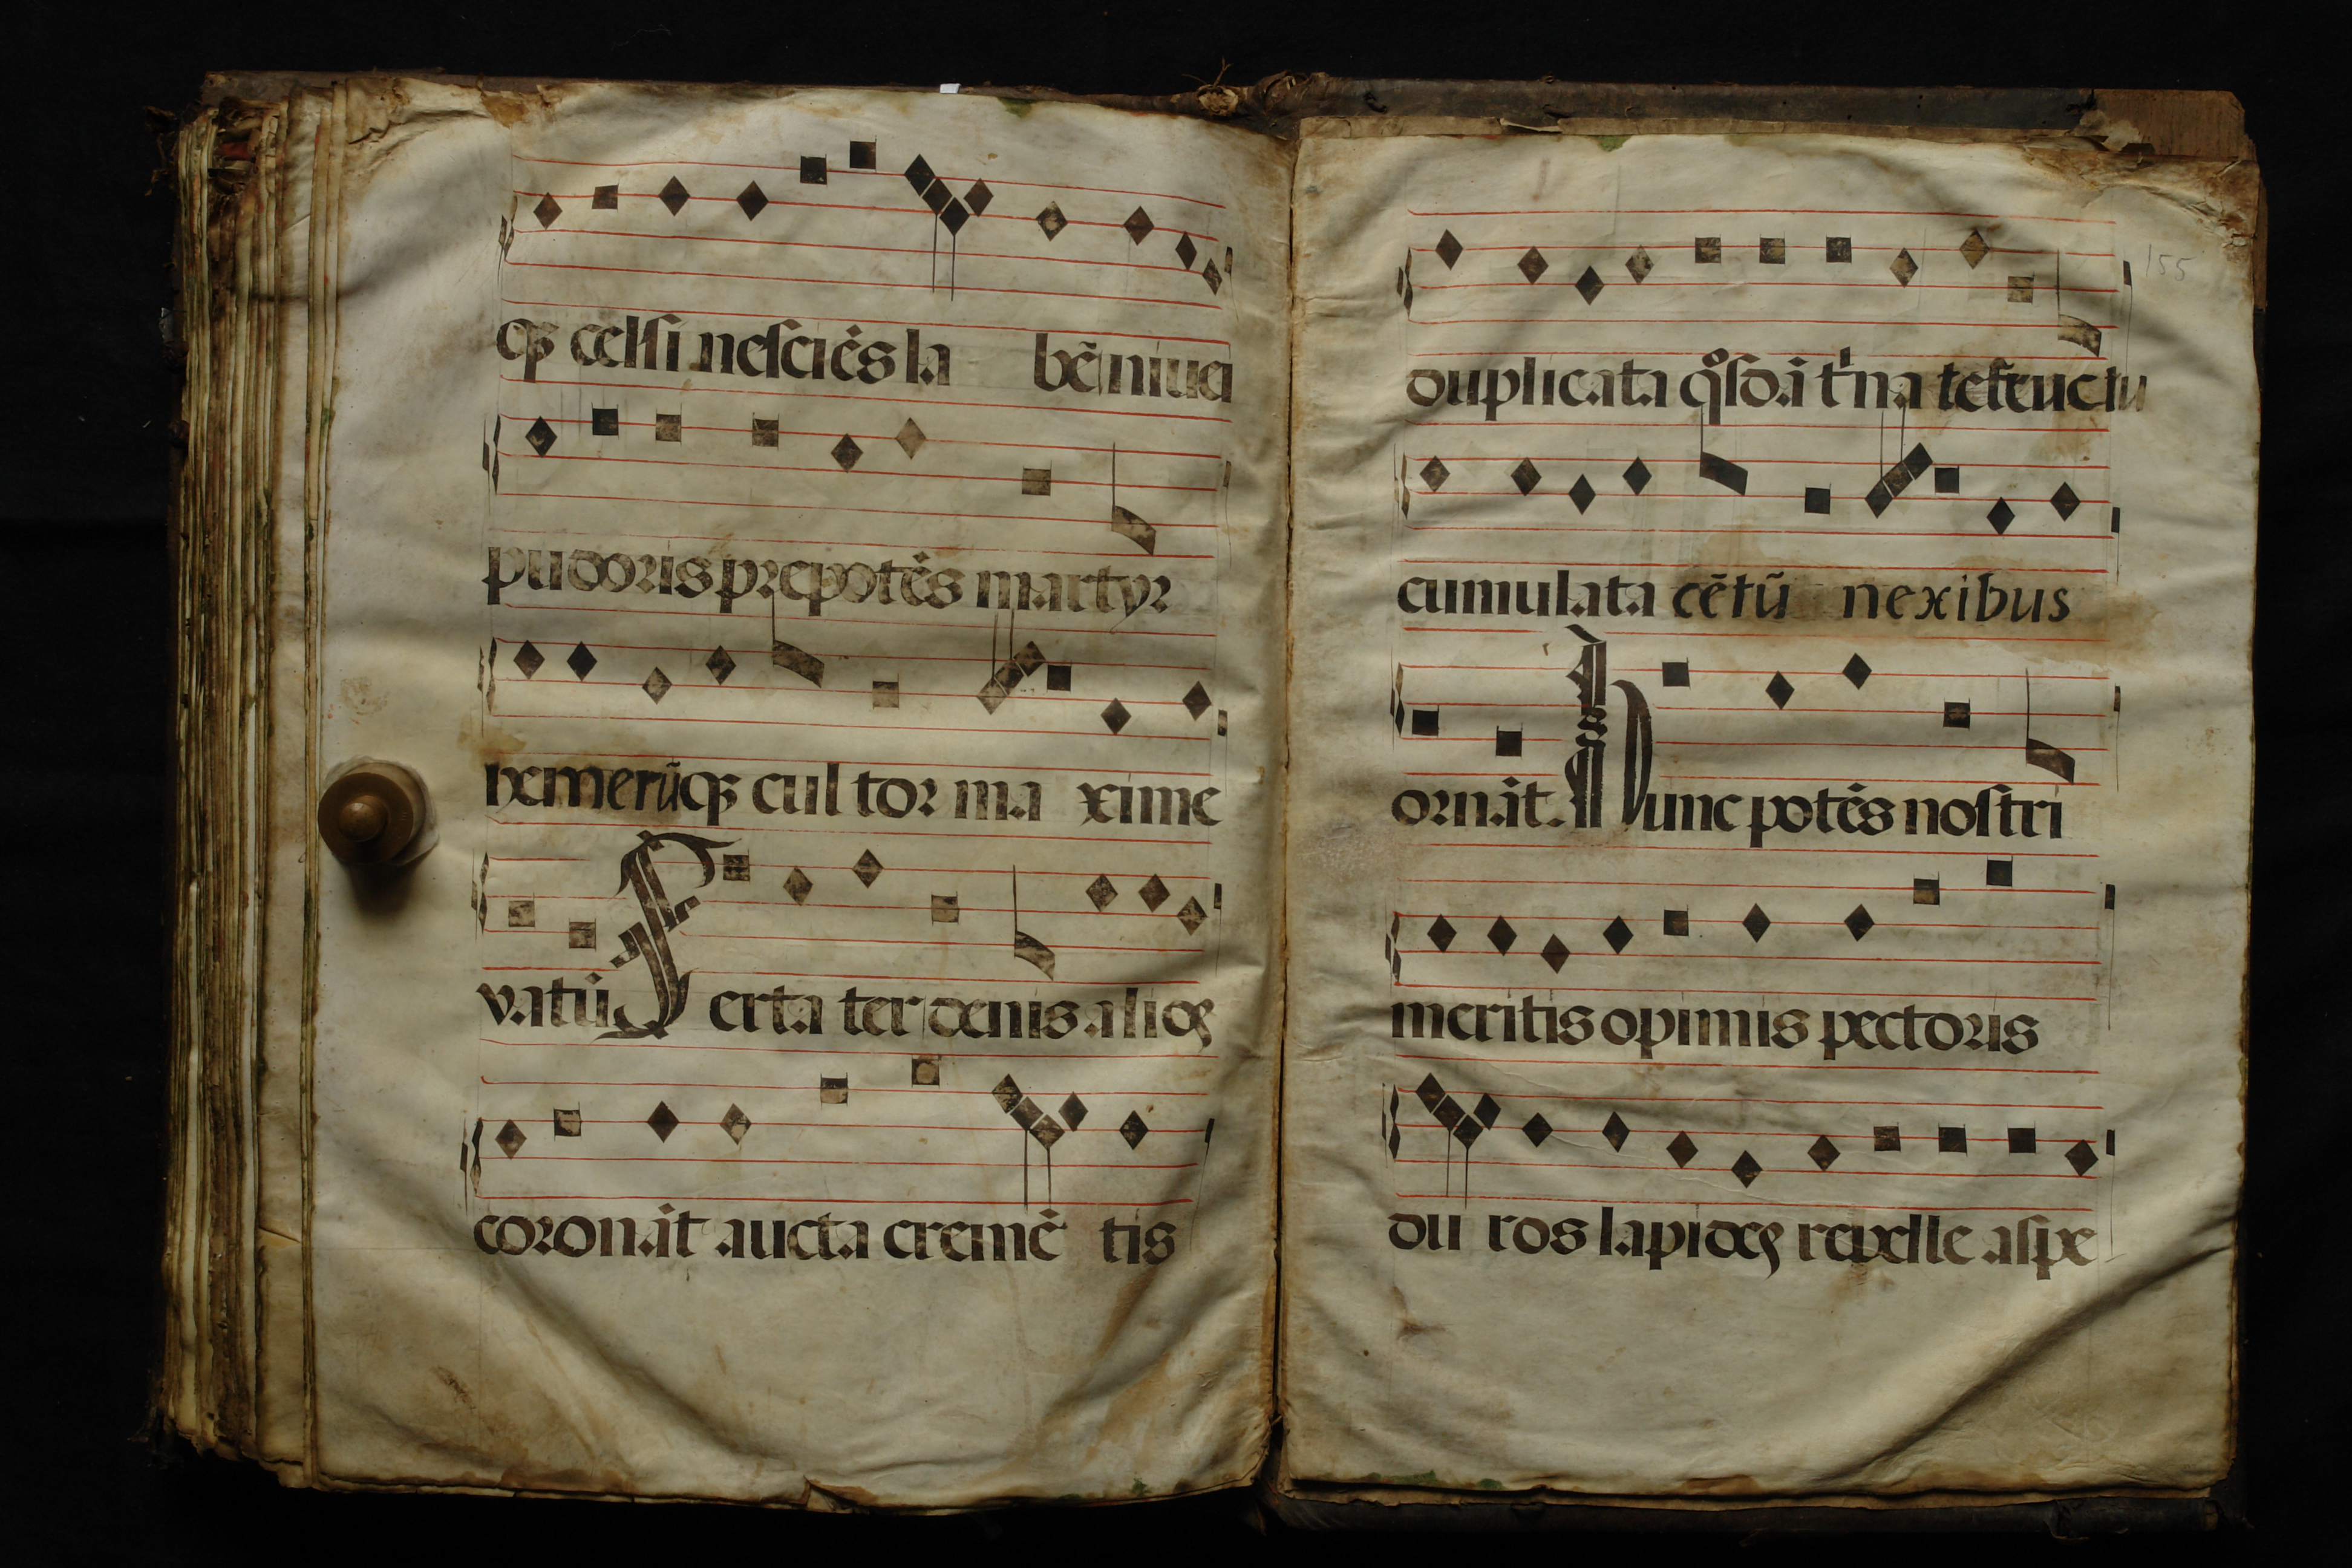 qȝ celsi nesciēs la bē niuei
pudoris prepotēs martyr
nemerūqȝ cul tor ma xime
vatū Serta ter denis alios
coronāt aucta cremē tis
155
duplicata qͦsdā t͛na te fructu
cumulata cētū nexibus
ornāt. Nunc potēs nostri
meritis opimis pectoris
du ros lapides repelle aspe